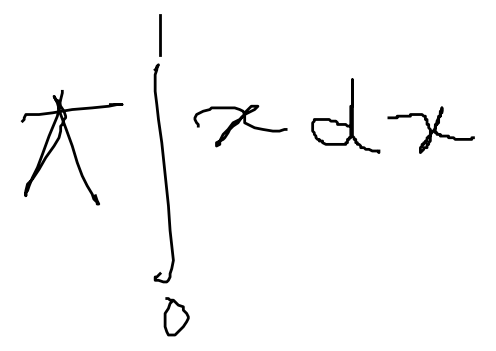 π∫₀¹ x dx